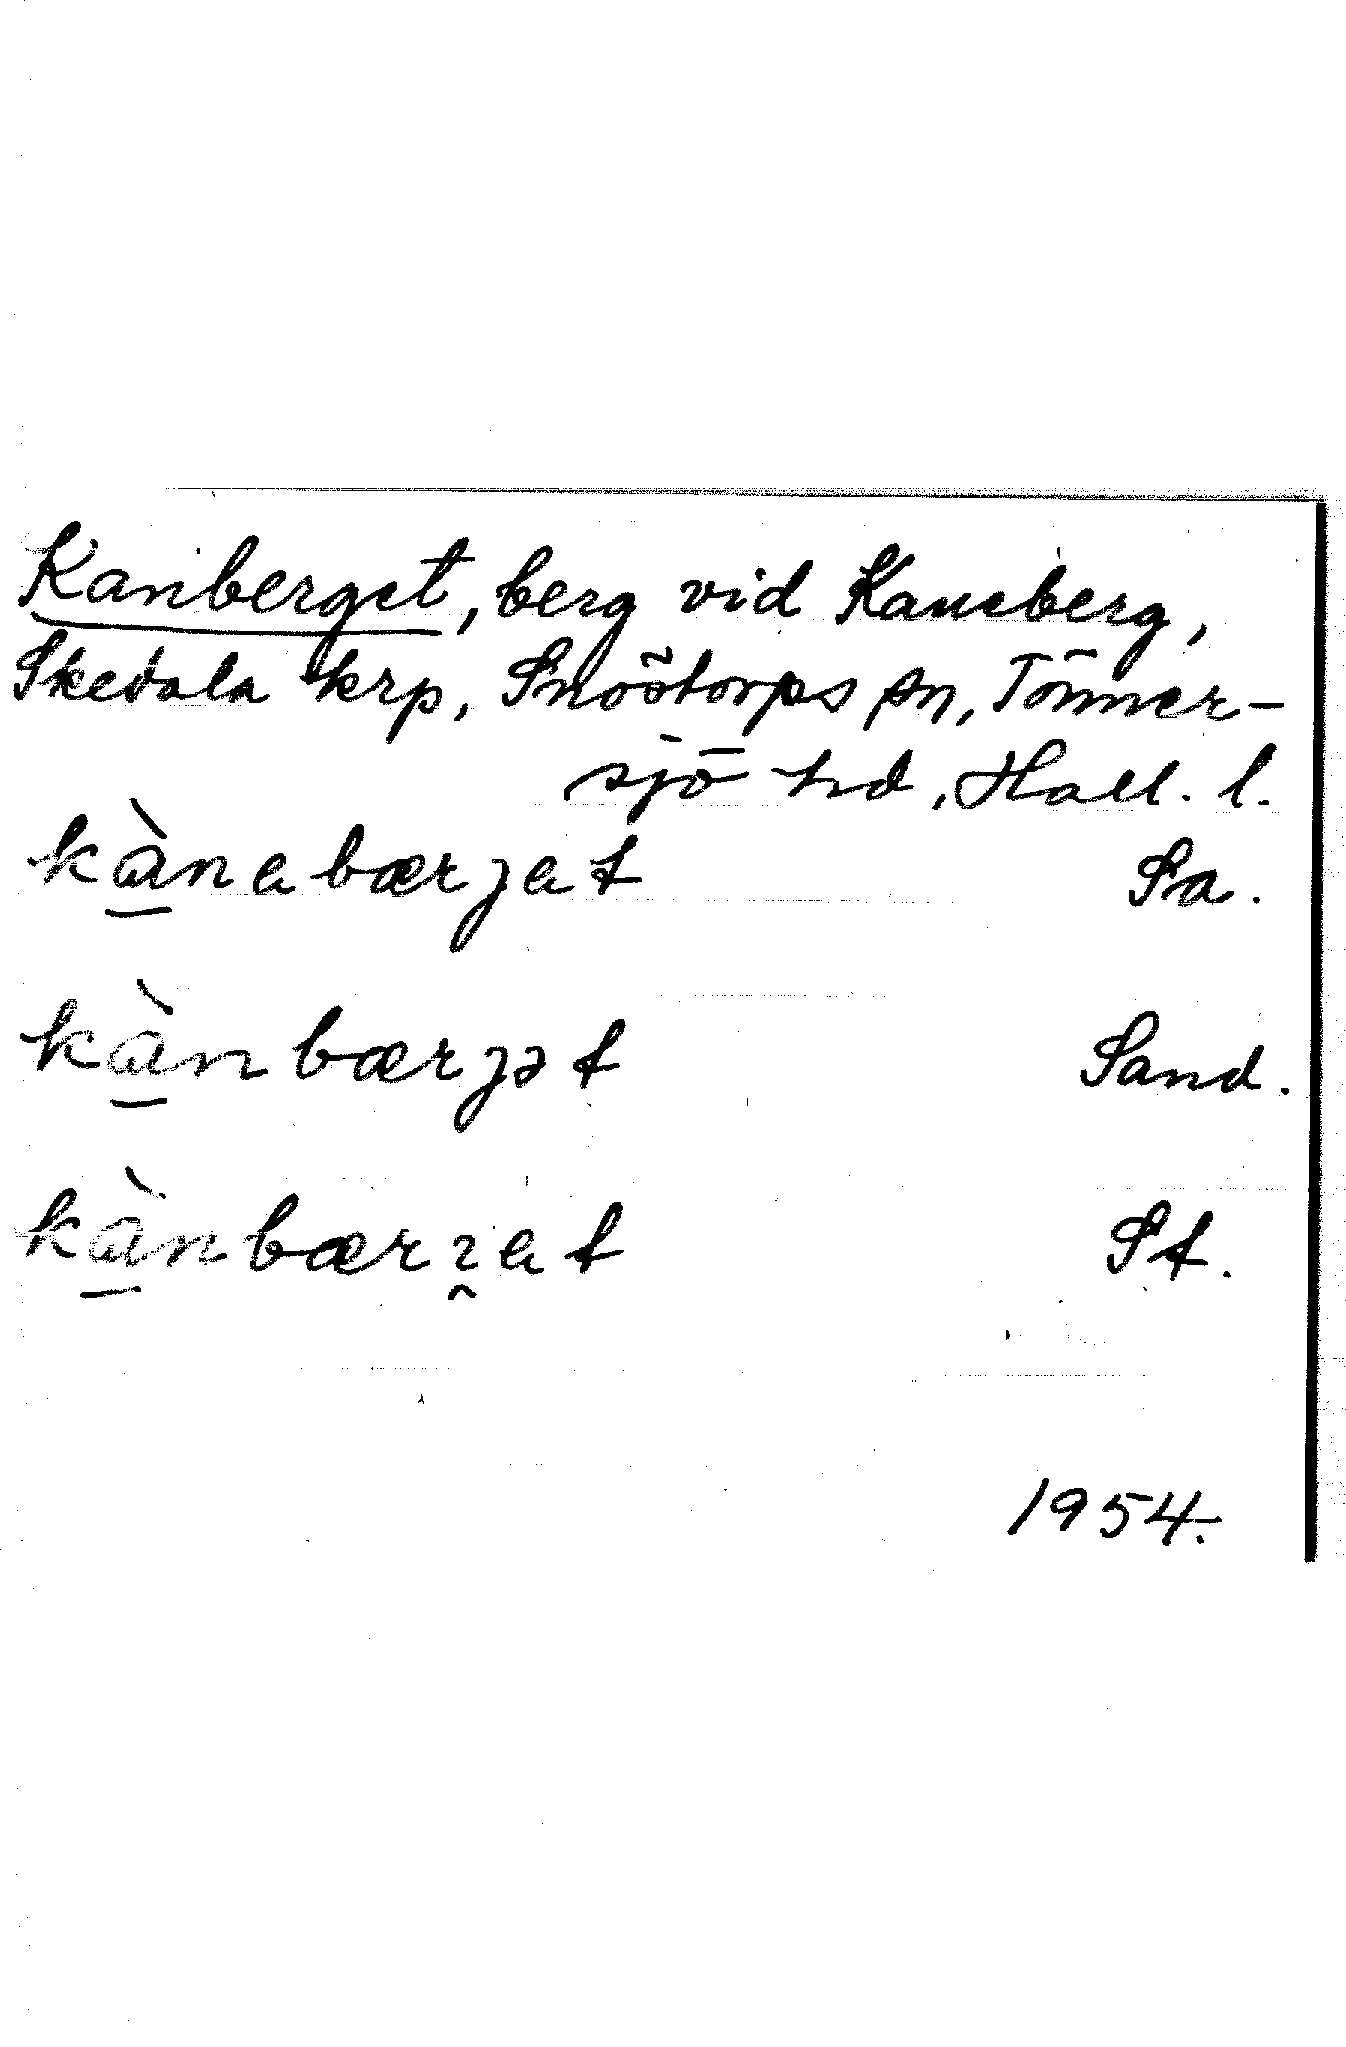 Kanberget, berg vid Kaneberg,
Skedala krp, Snöstorps sn, Tönner-
sjö hd, Hall. l.
kànabærjat Sa.
kànbærjət Sand.
kànbæri̯at St.
1954.